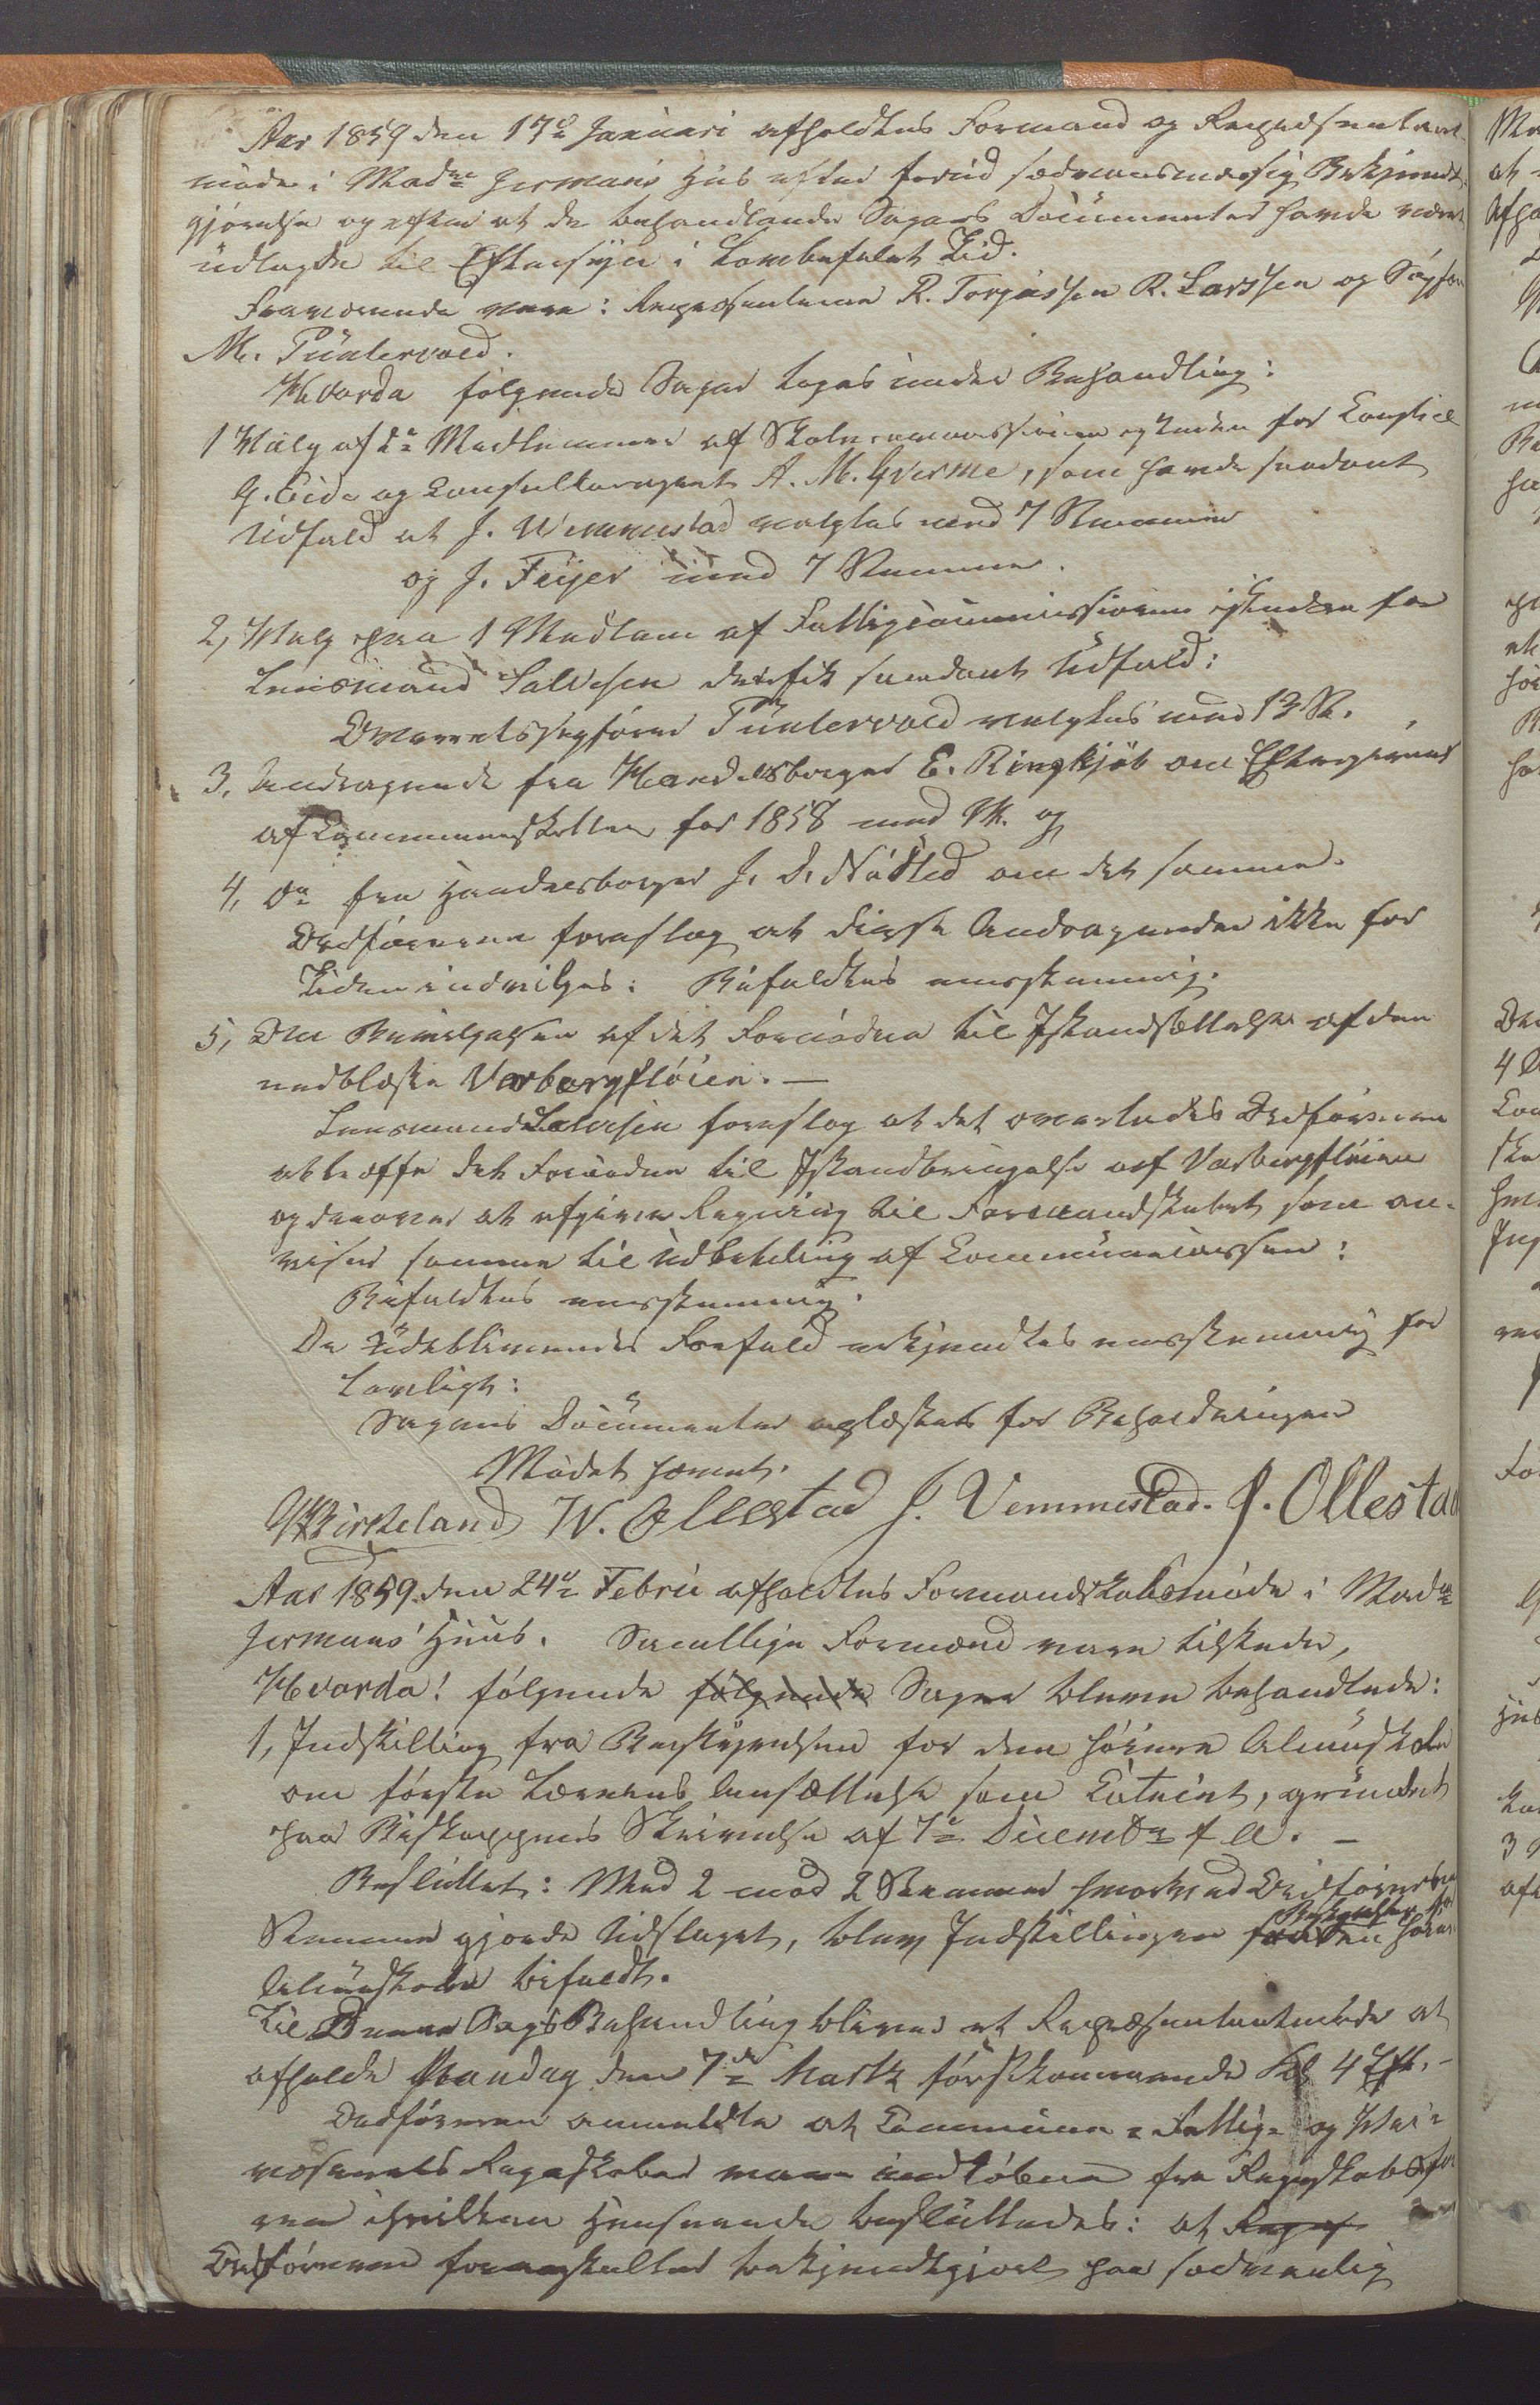 Aar 1859 den 17de Januari afholdtes Formand og Repræsentant-
møde i Madme Jermans Hus efter forud sædvansmæssig Bekjendt-
gjørelse og efter at de behandlende Sagers Documenter havde været
udlagte til Eftersyn i lovbefalet Tid.
Fraværende vare: Repræsentanterne R. Torgiussen R. Larssen og Sagfør
M. Puntervold.
Hvorda følgende Sager toges under Behandling:
1 Valg af 2de Medlemmer af Skolecommissionen istedet for
G. Eide og A. M. Qverme, som havde saadant
Udfald at J. Wemmestad valgtes med 7 Stemmer
og J. Feijer med 7 Stemmer.
2, Valg paa 1 Medlem af Fattigcommissionen istedetfor
Lensmand Salvesen der fik saadant Udfald:
Overretssagfører Puntervold valgtes med 13 St.
3, Andragende fra Handelsborger E. Ringkjöb om Eftergivelse
af Communeskatten for 1858 med og
4, Do fra Handelsborger J. D. Nödled om det samme.
Ordføreren foreslog at disse Andragender ikke for
Tiden indvilges: Bifaldtes eenstemmig.
5, Om Bevilgelsen af det Fornødne til Istandsættelse af den
nedblæste Varbergfløien. —
Lensmand Salvesen foreslog at det overlades Ordføreren
at treffe det Fornødne til Istandbringelse af Varbergfløien
og derover at afgive Regning til Formandskabet som an-
viser samme til Udbetaling af Communecassen:
Bifaldtes eenstemmig.
De Udeblevendes Forfald erkjendtes eenstemmig for
lovligt:
Sagens Documenter for Beholdningen
Mødet hævet.
Birkeland W. Ollestad J. Vemmestad. J. Ollestad
Aar 1859 den 24de Febru afholdtes Formandskabsmøde i Madme
Jermans' Huus. Samtlige Formænd vare tilstede,
Hvorda! følgende følgende Sager bleve behandlede:
1, Indstilling fra Bestyrelsen for den høiere Almuskole
om første Lærerens Ansættelse som , grundet
paa Biskoppens Skrivelse af 7de Decembr f A. —
Besluttet: Med 2 mod 2 Stemmer hvorved Ordførerens
Stemme gjorde Udslaget, blev Indstillingen fra Bestyrelsen for den høiere
Almuskole bifaldt.
Til Denne Sags Behandling bliver et Repræsentantmøde at
afholde Mandag den 7de Marts førstkommende Kl 4 Eft. —
Ordføreren anmeldte at Commune- Fattig- og Vei-
væsenets Regnskaber vare indløbne fra Regnskabsfør
ren i hvilken Henseende besluttedes: at
Ordføreren foranstalter bekjendtgjort paa sædvanlig